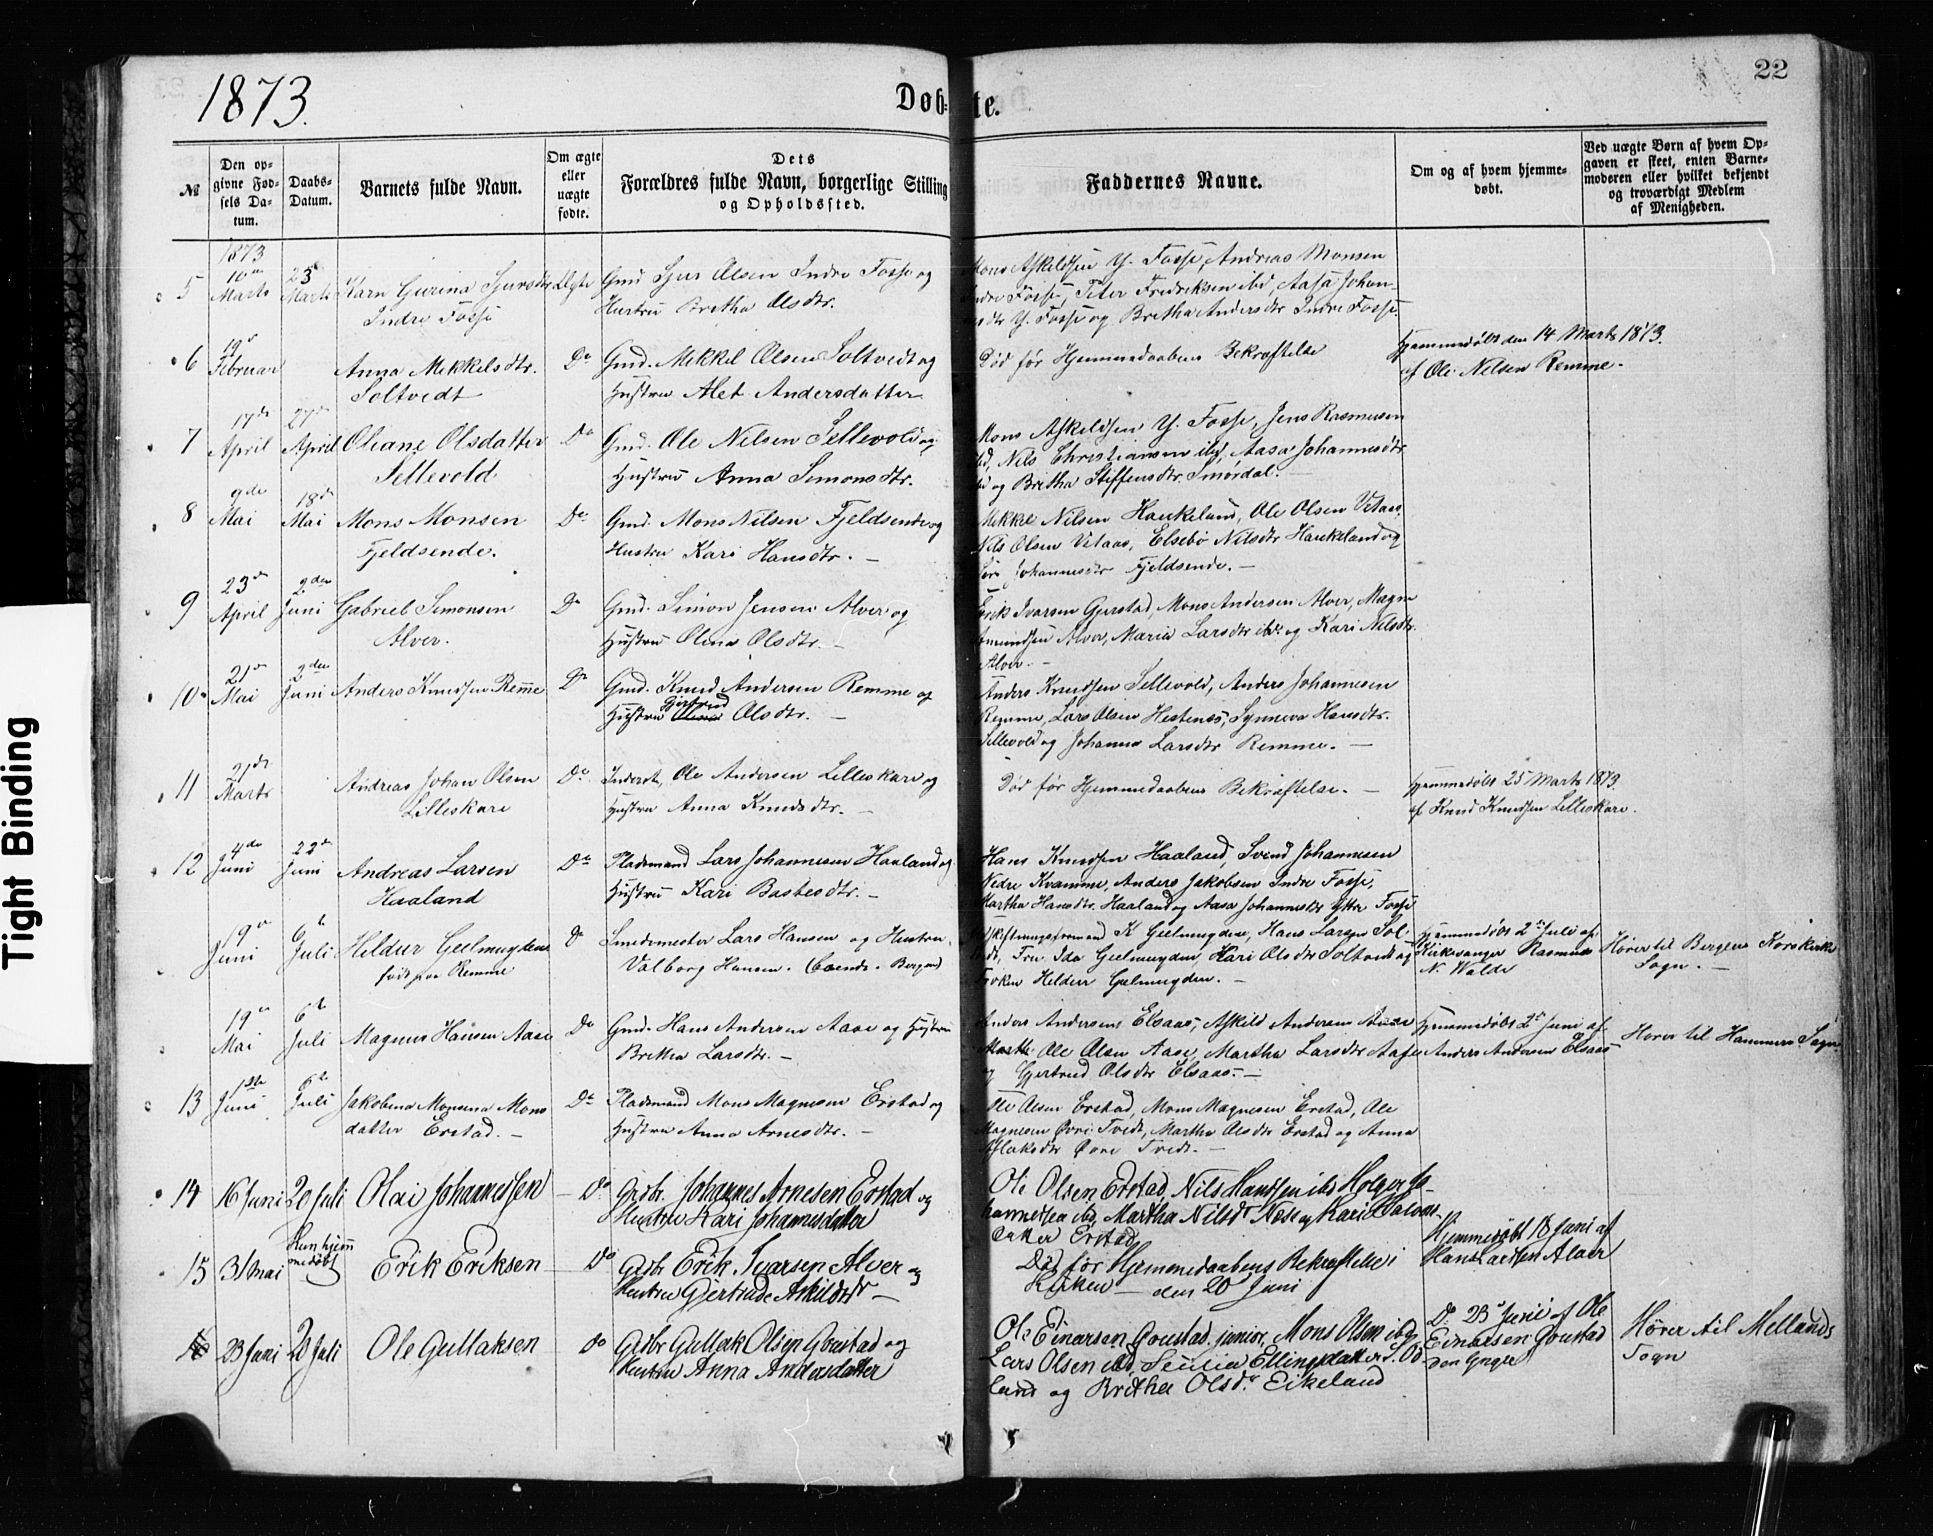 1873.
Døb-
te.
22
Tight Binding
№
Den op-
givne Fød-
sels Da-
tum.
Daabs-
Datum.
Barnets fulde Navn.
Om ægte
eller
uægte
fødte.
Dets
Forældres fulde Navn, borgerlige Stilling
og Opholdssted.
Faddernes Navne.
Om og af hvem hjemme-
døbt.
Ved uægte Børn af hvem Op-
gaven er skeet, enten Barne-
moderen eller hvilket bekjendt
og troværdigt Medlem
af Menigheden.
1873
5 10de Marts 23 Marts Karn Gurina Sjursdtr Ægte Gmd Sjur Olsen Indre Fosse og
Indre Fosse Hustru Bretha Olsdtr.
Mons Askildsen Y. Fosse, Andreas Monsen
Indre Fosse, Peter Fredriksen ibd, Aasa Johan-
nesdtr Y. Fosse og Bretha Andersdtr Indre Fosse.
6 19de Februar Anna Mikkelsdtr. Do Gmd. Mikkel Olsen Soltvedt og
Soltvedt Hustru Alet Andersdatter
Død før Hjemmedaabens Bekræftelse
Hjemmedøbt den 14 Marts 1873.
af Ole Nilsen Remme.
7 17de April 27de April Oliane Olsdatter Do Gmd. Ole Nilsen Sellevold og
Sellevold Hustru Anna Simonsdtr.
Mons Askeldsen Y. Fosse, Jens Rasmusen
ibd, Nils Christiansen ibd, Aasa Johannesdtr
ibd og Bretha Steffensdtr Smørdal.
8 9de Mai 18de Mai Mons Monsen Do Gmd. Mons Nilsen Fjeldsende og
Fjeldsende. Hustru Kari Hansdtr. —
Mikkel Nilsen Haukeland, Ole Olsen Vetaas,
Nils Olsen Vetaas, Elsebø Nilsdtr Haukeland og
Johannesdtr Fjeldsende. —
9 23de April 2den Juni Gabriel Simonsen Do Gmd. Simon Jensen Alver og
Alver. Hustru Olina Olsdtr. —
Erik Ivarsen Gjerstad, Mons Andersen Alver, Magne
Amundsen Alver, Maria Larsdtr ibd. og Kari Nilsdtr.
Alver. —
10 21de Mai 2den Juni Anders Knudsen Remme Do Gmd. Knud Andersen Remme og
Hustru Gjertrud Olsdtr. —
Anders Knudsen Sellevold, Anders Johannesen
Remme, Lars Olsen Hestenes, Synneva Hansdtr.
Sellevold og Johanna Larsdtr Remme. —
11 21de Marts Andreas Johan Olsen Do Inderst, Ole Andersen Lilleskare og
Lilleskare Hustru Anna Knudsdtr. —
Død før Hjemmedaabens Bekræftelse. —
Hjemmedøbt 25 Marts 1873.
af Knud Knudsen Lilleskare.
12 4de Juni 22de Juni Andreas Larsen Do Pladsmand Lars Johannesen Haaland og
Haaland Hustru Kari Bastesdtr. —
Hans Knudsen Haaland, Svend Johannesen
Nedre Kvamme, Anders Jakobsen Indre Fosse,
Martha Hansdtr. Haaland og Aasa Johannesdtr Ytre Fosse
19de Juni 6te Juli Heldur Geelmuyden Do Smedemester Lars Hansen og Hustru
født paa Remme Valborg Hansen. (boende. Bergen)
K Geelmuyden, Hans Larsen Sol-
tvedt, Fru Ida Geelmuyden, Kari Olsdtr Soltvedt og
Frøken Heldur Geelmuyden. —
Hjemmedøbt 2den Juli af
Kirkesanger Rasmus
N. Walde
Hører til Bergens Korskirke
Sogn. —
19de Mai 6te Juli Magnus Hansen Aase Do Gmd. Hans Andersen Aase og Hustru
Bretha Larsdtr. —
Anders Andersens Elsaas, Askild Andersen Aase
Ole Olsen Aase, Martha Larsdtr Aase
og Gjertrud Olsdtr Elsaas. —
Hjemmedøbt 2den Juni af
Anders Andersen Elsaas
Hører til Hammers Sogn.
13 1ste Juni 6te Juli Jakobina Monsena Mons Do Pladsmand Mons Magnesen Erstad og
datter Erstad. — Hustru Anna Arnesdtr. —
Ole Olsen Erstad, Mons Magnesen Erstad, Ole
Magnesen Øvre Tvedt, Martha Olsdtr Erstad og Anna
Aslaksdtr Øvre Tvedt. —
14 16 Juni 20 Juli Olai Johannessen Do Grdbr. Johannes Arnesen Erstad og
Hustru Kari Johannesdatter
Ole Olsen Erstad, Nils Hansen ibd Holger Jo-
hannessen ibd, Martha Nilsdr Næse og Kari
Erstad
15 31 Mai Kun hjem
medøbt Erik Eriksen Do Grdbr Erik Ivarsen Alver og
Hustru Gjertrude Askildsdr —
Død før Hjemmedaabens Bekræftelse i
Kirken — den 20 Juni
Hjemmedøbt 18 Juni af
Hans Larssen Alver
23 Juni 20 Juli Ole Gullaksen do Grdbr Gullak Olsen Qvustad og
Hustru Anna Andersdatter
Ole Einarsen Qvustad junior, Mons Olsen ibd
Lars Olsen ibd, Ellingsdatter S. Od-
land og Brithe Olsdr. Eikeland
Do. 23 Juni af Ole
Einarsen Qvustad
den yngre
Hører til Mellands
Sogn